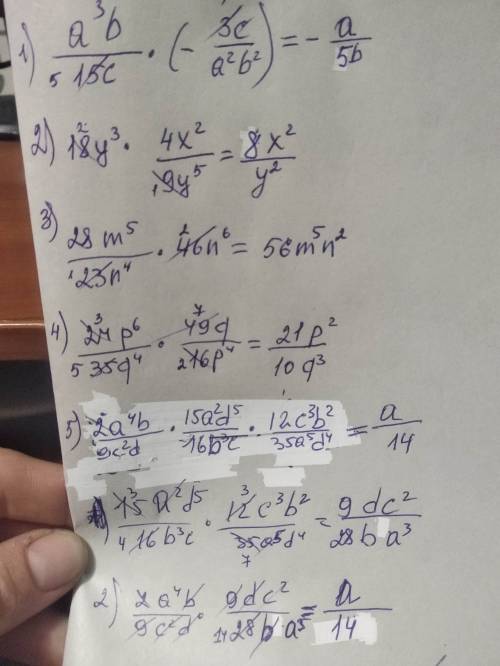 1) a³b / 5 15c · (- 3c / a²b²) = - a / 5b
2) 18 2 y³ · 4x² / 1 9y⁵ = 8x² / y²
3) 28m⁵ / 1 23n⁴ · 2 46n⁶ = 56m⁵n²
4) 24 3 p⁶ / 5 35q⁴ · 7 49q / 2 16p⁴ = 21p² / 10q³
5) 2a⁴b / 9c²d · 15a²d⁵ / 16b³c · 12c³b² / 35a⁵d⁴ = a / 14
1) 15 3 a²d⁵ / 4 16b³c · 3 12c³b² / 35a⁵d⁴ 7 = 9dc² / 28ba³
2) 2a⁴b / 9c²d · 9dc² / 14 28ba³ = a / 14